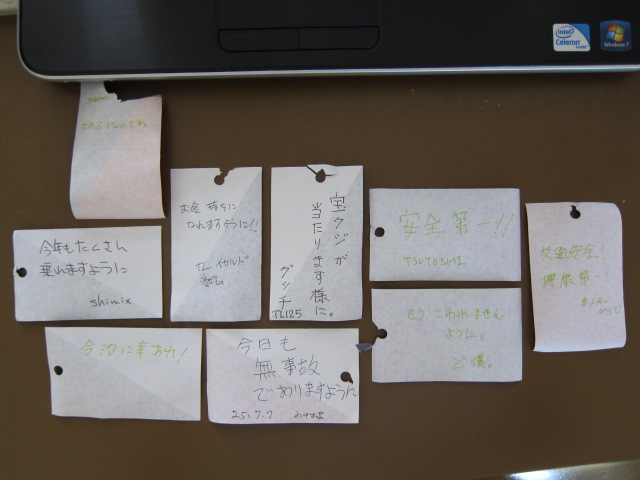 intel
Celeron
inside
Windows 7
お金持ちに
なれますように!!
宝クジが
当たります様に。
グッチ
TL125
安全第一!!
TSUYOSHI
交通安全!
健康第一!
今年もたくさん
乗れますように
shimix
もう、こわれません
ように。
僕。
今汐に幸あれ!
今日も
無事故
でありますように
25.7.7